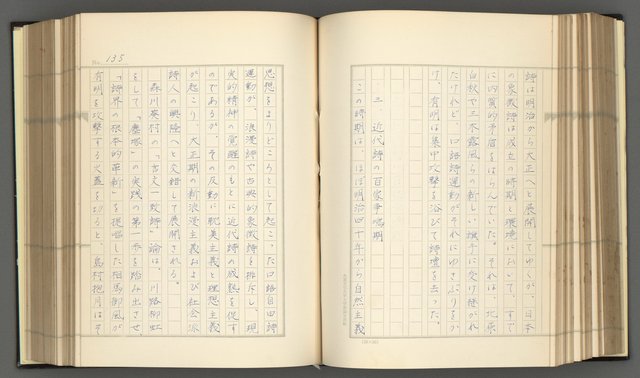 詩は明治から大正へと展開してゆくが、日本
の象徴詩は成立の時期と環境において、すで
に内質的矛盾をはらんでいた。それは、北原
白秋や三木露風らの新しい旗手に受け継がれ
たけれど、口語詩運動がそれにゆさぶりをか
け、有明は集中攻撃を浴びて詩壇を去った。
三、近代詩の百家争鳴期
この時期は、ほぼ明治四十年から自然主義
No. 135
思想をよりどころとして起こった口語自由詩
運動が、浪漫詩や古典的象徴詩を排斥し、現
実的精神の覚醒のもとに近代詩の成熟を促す
のであるが、その反動に耽美主義と理想主義
が起こり、大正期の新浪漫主義および社会派
詩人の興隆へと交錯して展開される。
森川葵村の「言文一致詩」論は、川路柳虹
をして「塵塚」の実践の第一歩を踏み出させ、
「詩界の根本的革新」を提唱した相馬御風が
有明を攻撃する火蓋を切ると、島村抱月はそ